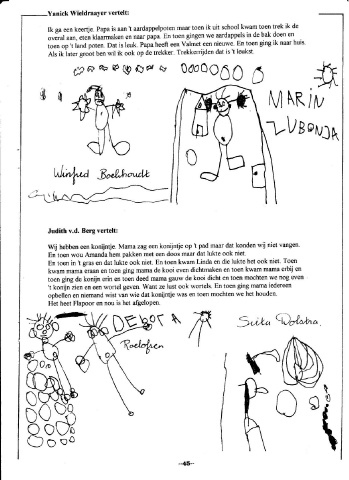 Yanick Wieldraayer vertelt:
Ik ga een keertje. Papa is aan 't aardappelpoten maar toen ik uit school kwam toen trek ik de
overal aan, eten klaarmaken en naar papa. En toen gingen we aardappels in de bak doen en
toen op 't land poten. Dat is leuk. Papa heeft een Valmet een nieuwe. En toen ging ik naar huis.
Als ik later groot ben wil ik ook op de trekker. Trekkerrijden dat is 't leukst.
MARIN
ZUBONJA
Winfred Boekhoudt
Judith v.d. Berg vertelt:
Wij hebben een konijntje. Mama zag een konijntje op 't pad maar dat konden wij niet vangen.
En toen wou Amanda hem pakken met een doos maar dat lukte ook niet.
En toen in 't gras en dat lukte ook niet. En toen kwam Linda en die lukte het ook niet. Toen
kwam mama eraan en toen ging mama de kooi even dichtmaken en toen kwam mama erbij en
toen ging de konijn erin en toen deed mama gauw de kooi dicht en toen mochten we nog even
't konijn zien en een wortel geven. Want ze lust ook wortels. En toen ging mama iedereen
opbellen en niemand wist van wie dat konijntje was en toen mochten we het houden.
Het heet Flapoor en nou is het afgelopen.
DEBORA
Roelofsen
Dolstra
--45--